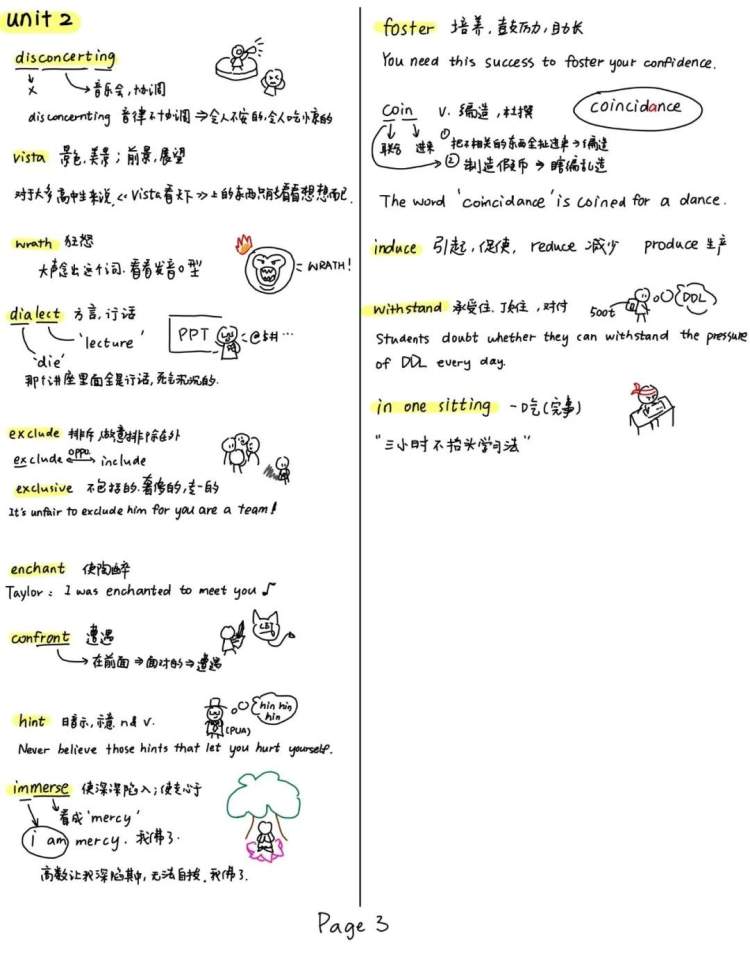 unit 2
disconcerting
x → 音乐会,协调
disconcernting 音律不协调 ⇒ 令人不安的,令人吃惊的
vista 景色,美景;前景,展望
对于大多高中生来说,《Vista看天下》上的东西只能看看想想而已.
wrath 狂怒
大声念出这个词.看看发音口型
= WRATH!
dialect 方言,行话
'lecture'
'die'
PPT
那个讲座里面全是行话,死气沉沉的.
exclude 排斥,故意排除在外
exclude oppo. include
exclusive 不包括的.奢侈的,专一的
It's unfair to exclude him for you are a team!
enchant 使陶醉
Taylor: I was enchanted to meet you ♪
confront 遭遇
→ 在前面 ⇒ 面对的 ⇒ 遭遇
hint 暗示,示意. n & v.
hin hin
hin
(PUA)
Never believe those hints that let you hurt yourself.
immerse 使深深陷入;使专心于
看成'mercy'
i am mercy. 我佛了.
高数让我深陷其中,无法自拔.我佛了.
foster 培养,鼓励,助长
You need this success to foster your confidence.
coin v. 编造,杜撰
coincidance
联合 进来 ① 把不相关的东西全扯进来 → 编造
② 制造假币 ⇒ 瞎编乱造
The word 'coincidance' is coined for a dance.
induce 引起,促使, reduce 减少 produce 生产
withstand 承受住.顶住,对付
500t
DDL
Students doubt whether they can withstand the pressure
of DDL every day.
in one sitting 一口气(完事)
"三小时不抬头学习法"
Page 3